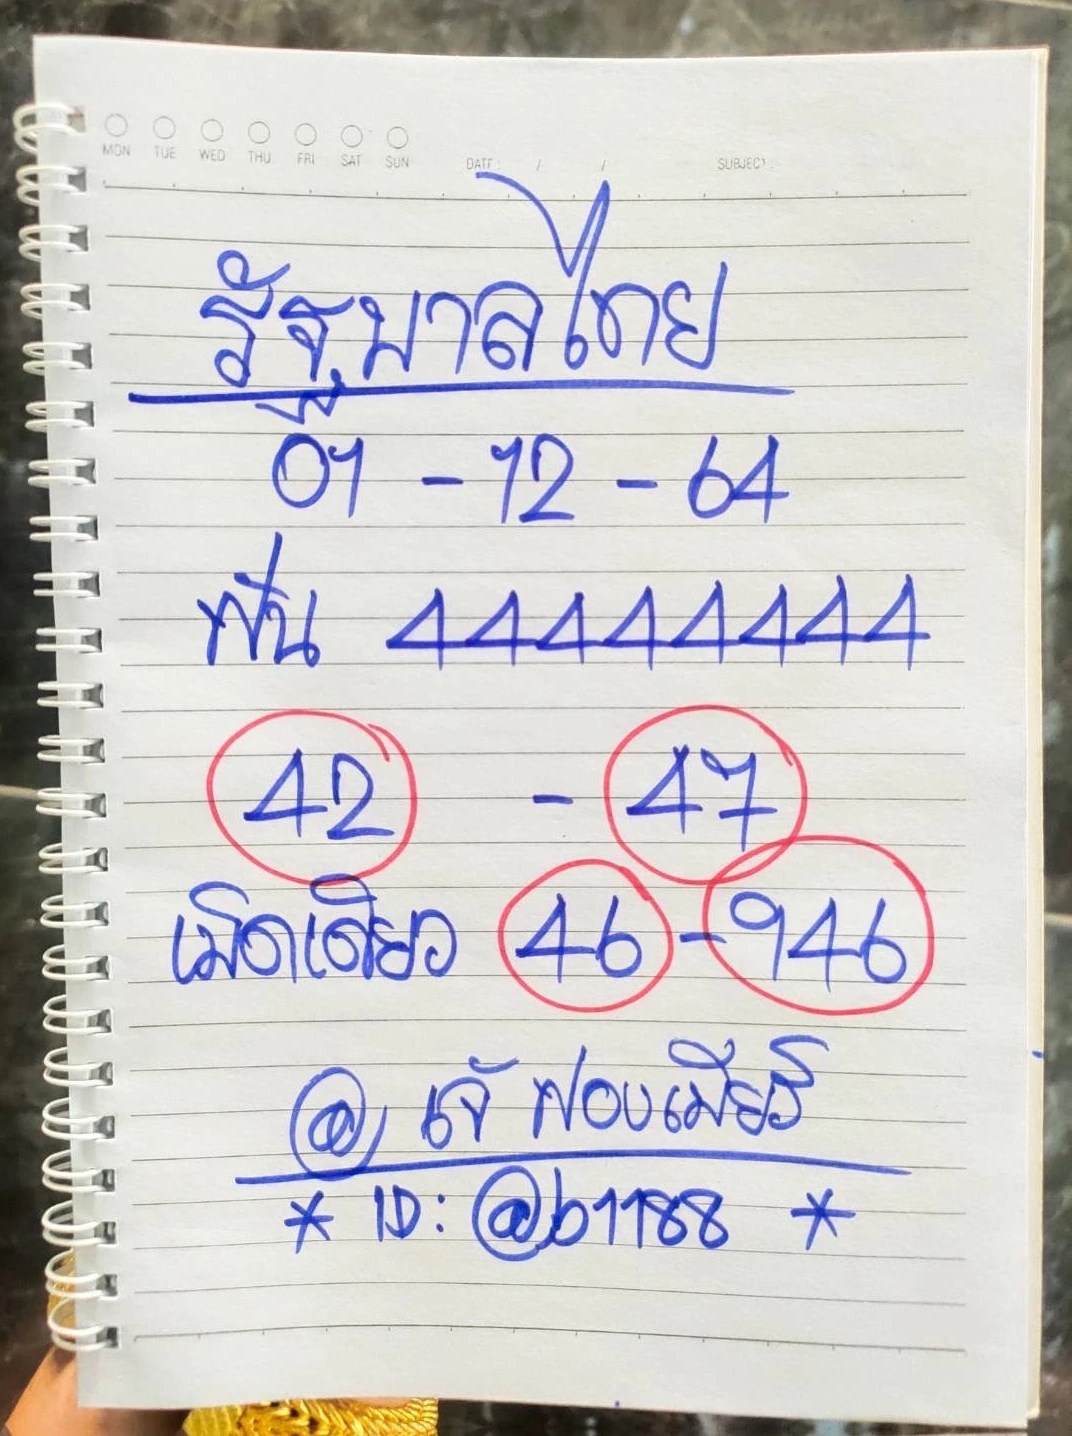 MON TUE WED THU FRI SAT SUN DATE : / / SUBJECT :
รัฐบาลไทย
01 - 12 - 64
ฟัน 44444444
42 - 47
เม็ดเดียว 46 - 946
@ เจ๊ ฟองเบียร์
* ID: @b1188 *